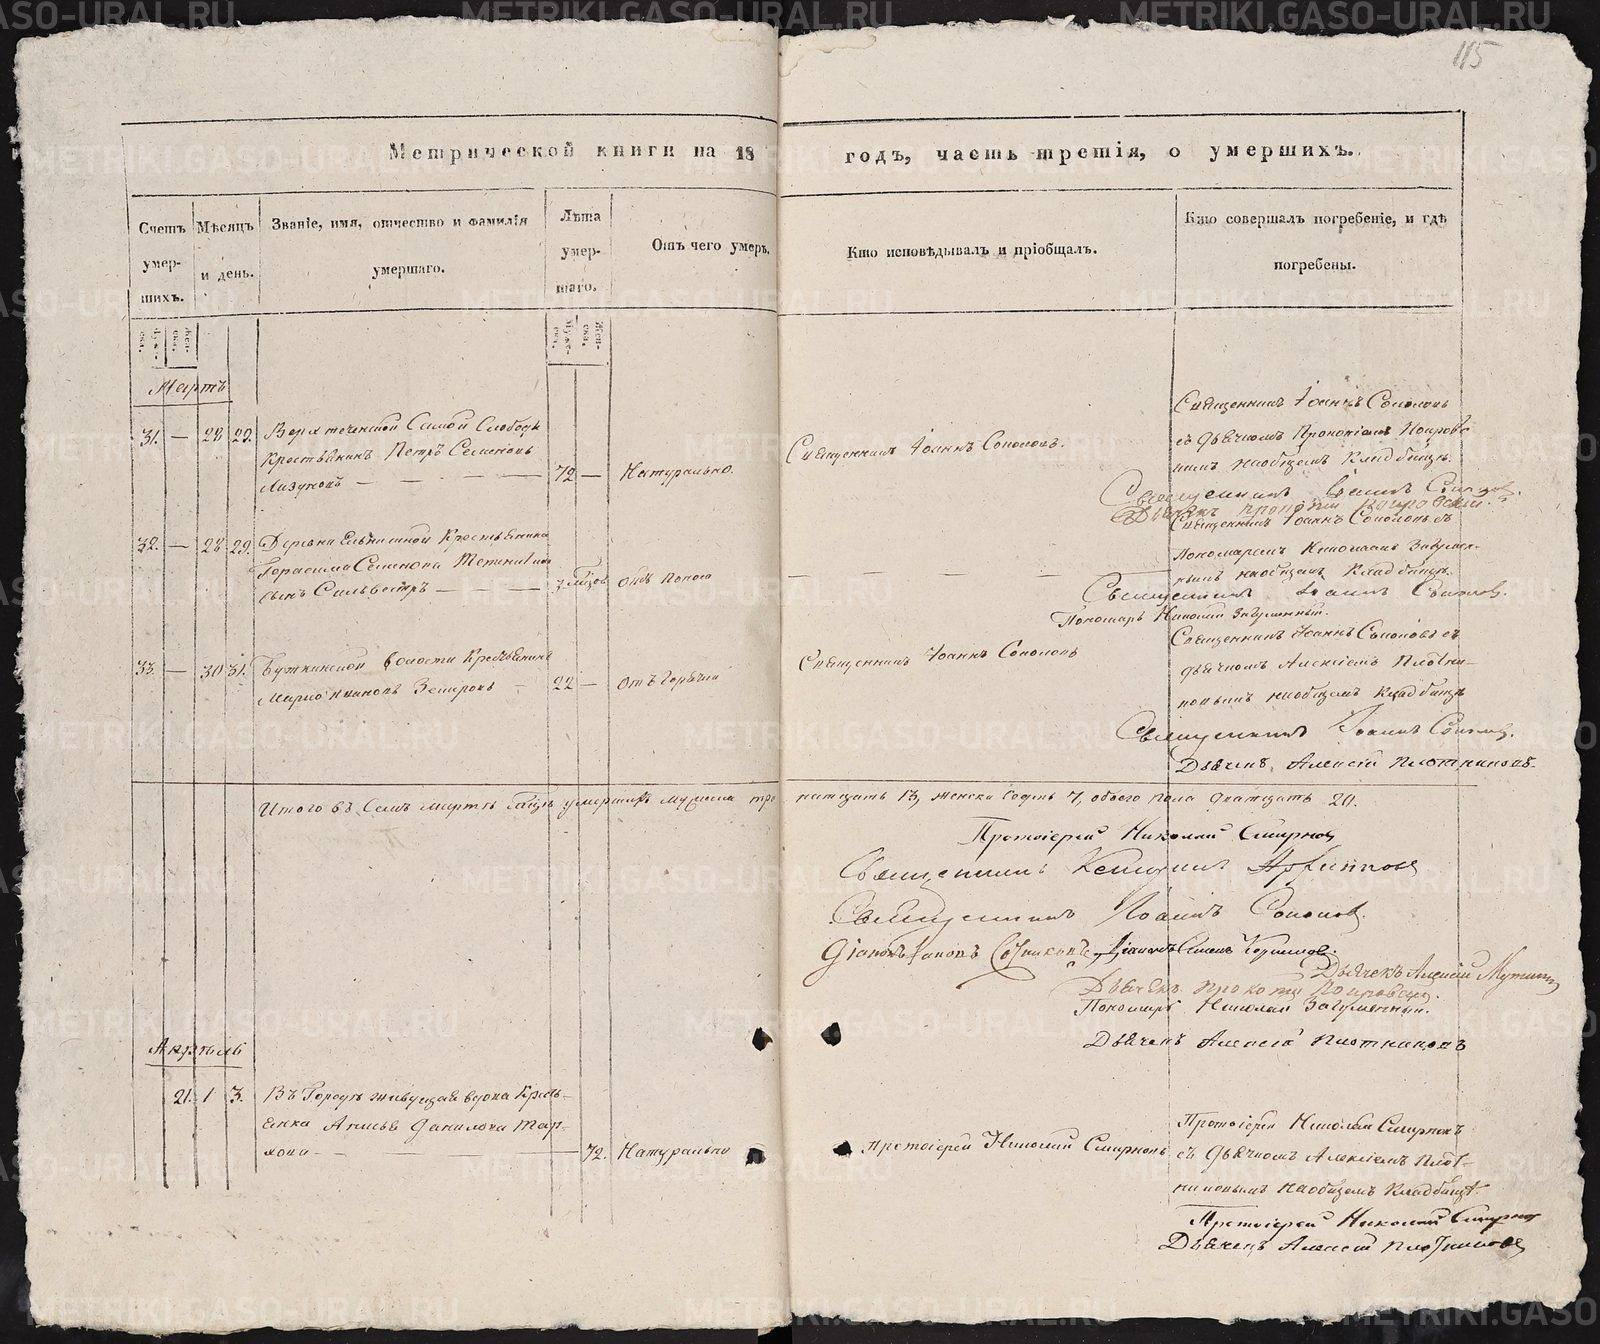 115
Метрической книги на 18 годъ, часть третія, о умершихъ.
Счетъ умер-шихъ.
Мѣсяцъ и день.
Званіе, имя, отчество и фамилія умершаго.
Лѣта умер-шаго.
Отъ чего умеръ.
Кто исповѣдывалъ и пріобщалъ.
Кто совершалъ погребеніе, и гдѣ погребены.
Мартъ
31. — 28 29.
Слободы
Крестьянинъ Петръ Семеновъ
Лизуновъ — — — 72 —
Натурально.
Священникъ Іоаннъ Соколовъ.
Священникъ Іоаннъ Соколовъ
съ дьячкомъ Прокопіемъ Покров-
скимъ наобщемъ Кладбищѣ.
Священникъ Іоаннъ Соколов.
Дьячекъ Прокопій Покровскій.
32. — 28 29.
Деревни Крестьянина
Герасима Семенова
сынъ Сильвестръ — — —
отъ поноса
Священникъ Іоаннъ Соколовъ съ
пономаремъ Николаемъ Загумен-
нымъ наобщемъ Кладбищѣ.
Священникъ Іоаннъ Соколов.
Пономарь Николай Загуменный.
33. — 30 31.
Буткинской волости Крестьянинъ
Ивановъ 22 —
отъ горячки
Священникъ Іоаннъ Соколовъ
Священникъ Іоаннъ Соколовъ съ
дьячкомъ Алексіемъ Плотни-
ковымъ наобщемъ кладбищѣ
Священникъ Іоаннъ Соколов.
Дьячекъ Алексій Плотниковъ.
Итого въ семъ мартѣ умершихъ мужеска тринатцать 13, женска седмь 7, обоего пола дватцать 20.
Протоіерей Николай Смирнов
Священникъ
Священникъ Іоаннъ Соколов.
Дьячекъ Алексій
Дьячекъ Прокопій Покровскій.
Пономарь Николай Загуменный.
Дьячекъ Алексій Плотниковъ
Апрѣль
21. 1 3.
Въ городѣ живущая вдова Кресть-
янка Анисья Данилова
— 72.
Натурально
Протоіерей Николай Смирновъ
Протоіерей Николай Смирновъ
съ дьячкомъ Алексіемъ Плот-
никовымъ наобщемъ Кладбищѣ.
Протоіерей Николай Смирнов
Дьячекъ Алексій Плотниковъ
METRIKI.GASO-URAL.RU